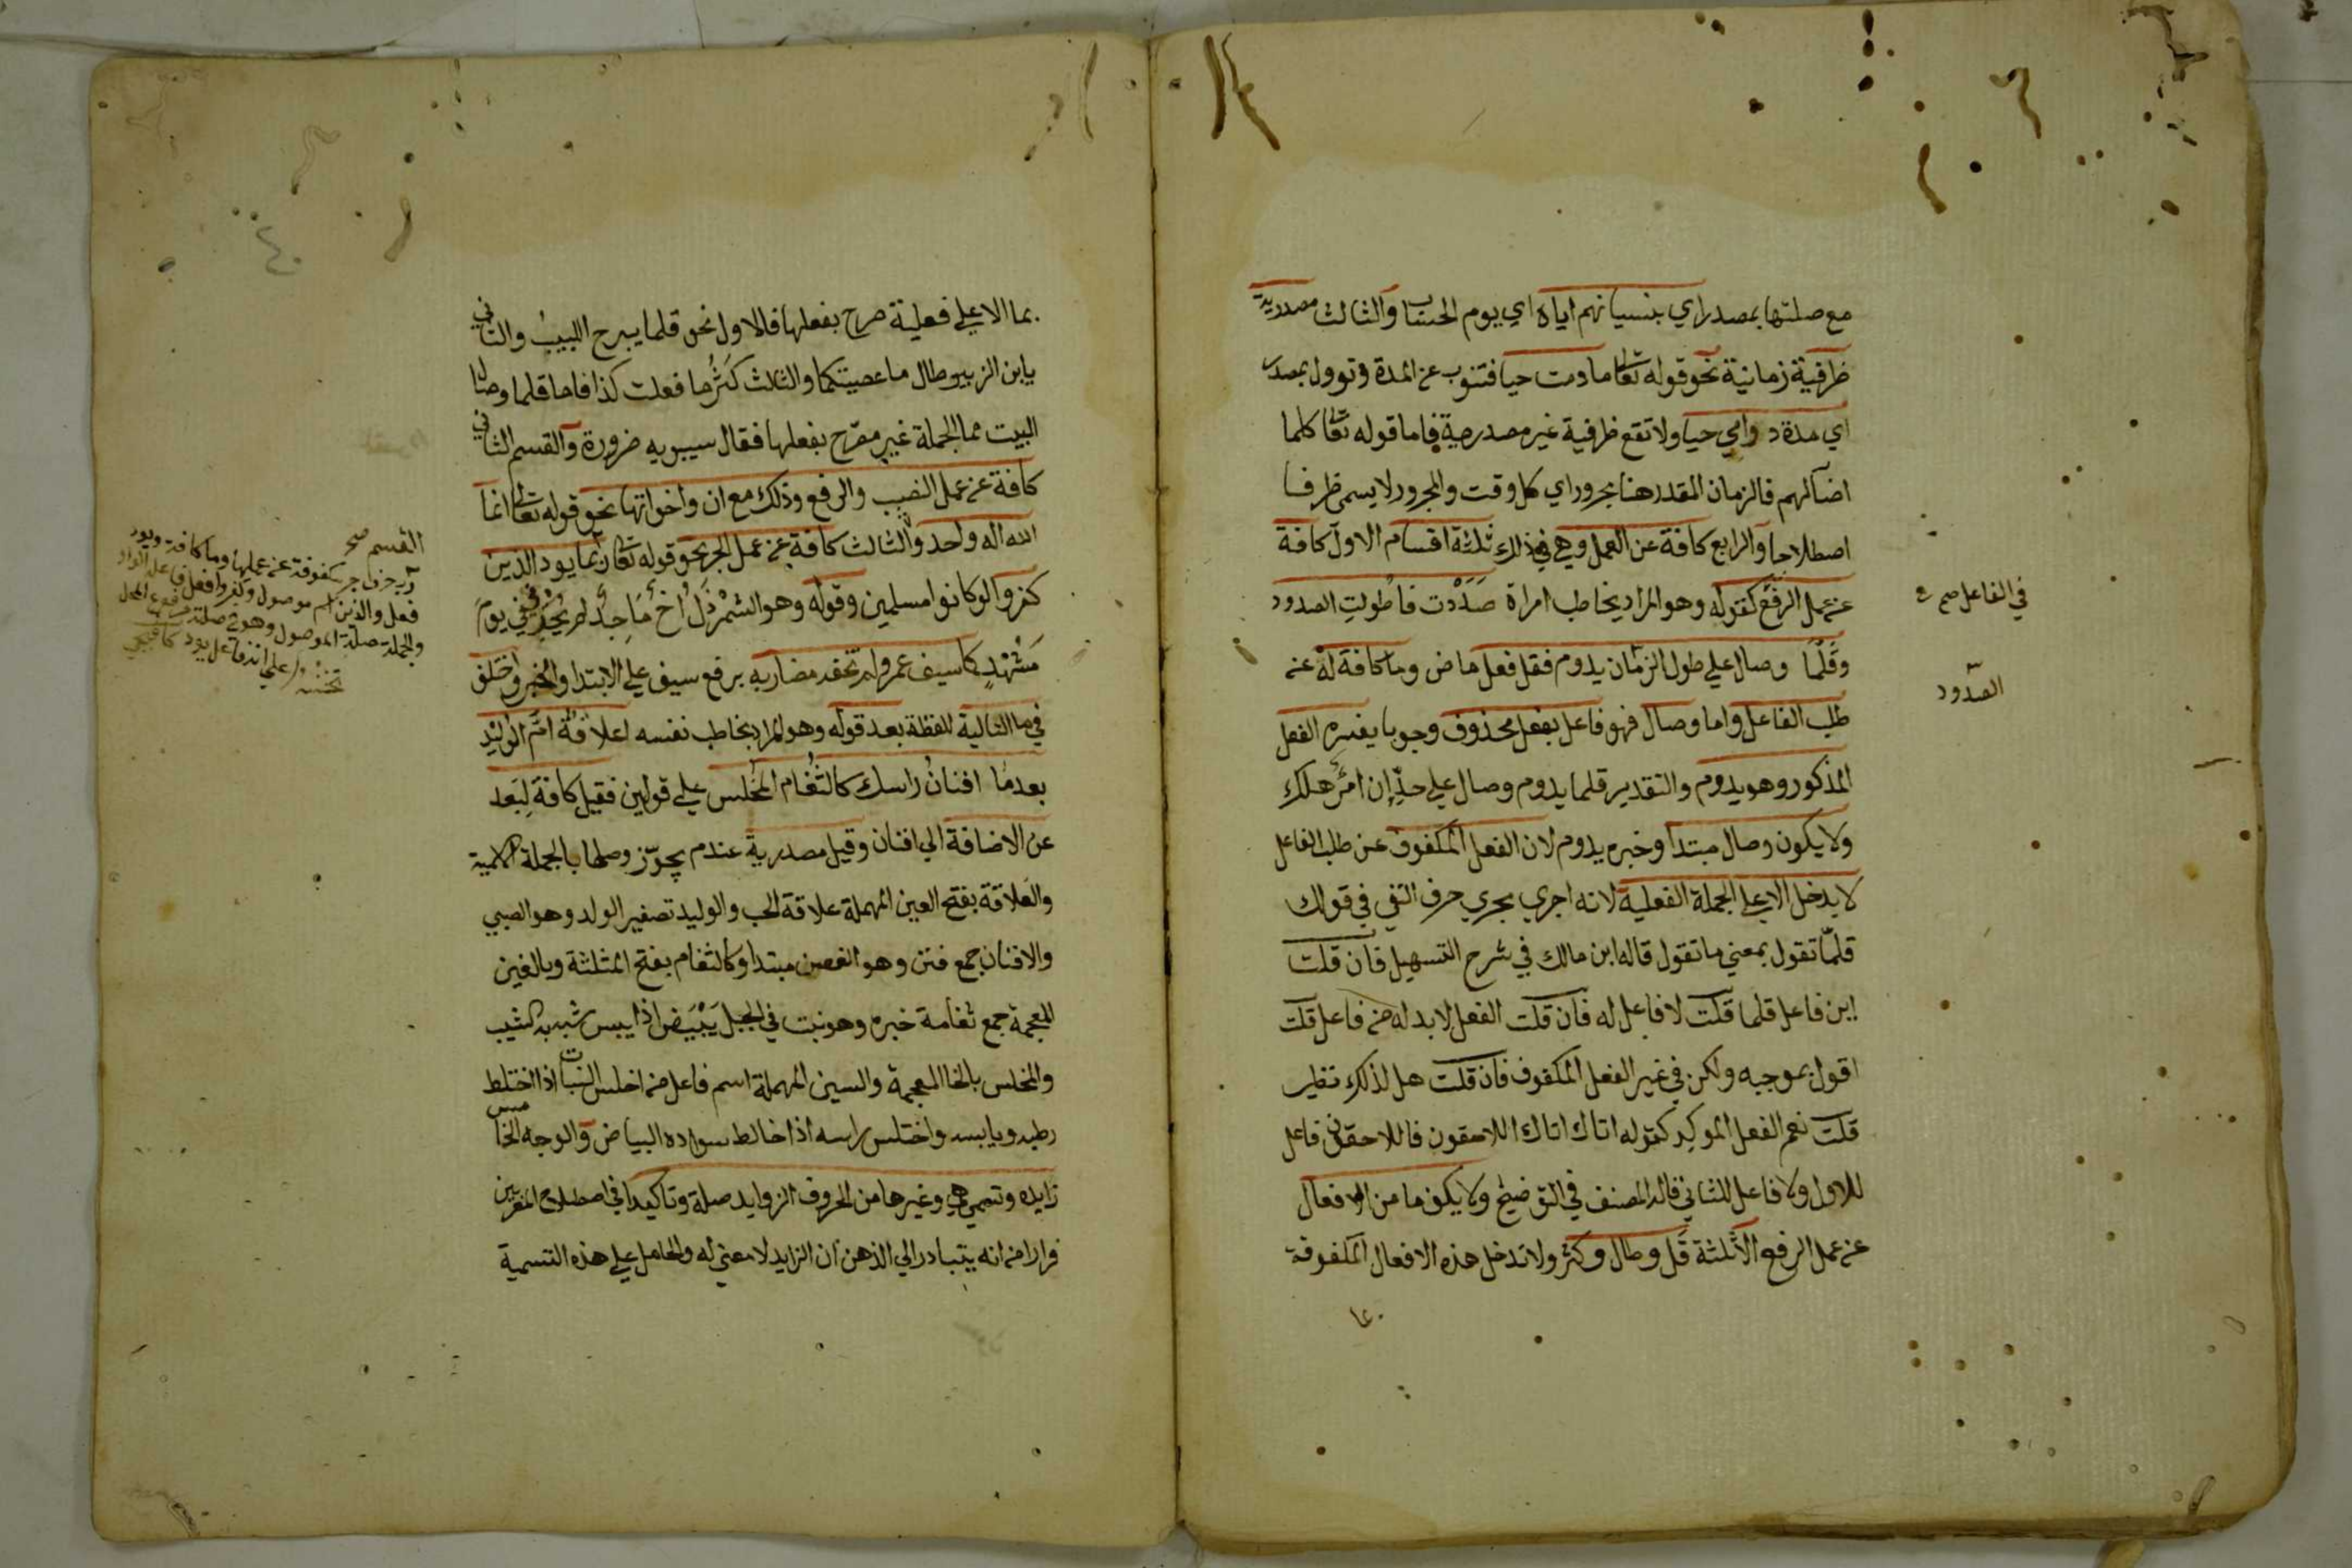 مع صلتها بمصدر اي بنسيانهم اياه اي يوم الحساب والثالث مصدرية
ظرفية زمانية نحو قوله تعالى ما دمت حيا فتنوب عن المدة وتوول بمصدر
اي مدة دوامي حيا ولا تقع ظرفية غير مصدرية فاما قوله تعالى كلما
اضآ لهم فالزمان المقدر هنا مجرور اي كل وقت والمجرور لا يسمى ظرفا
اصطلاحا والرابع كافة عن العمل وهي في ذلك ثلثة اقسام الاول كافة
عن عمل الرفع كقوله وهو المراد يخاطب امراة صَدَدْتِ فاطولتِ الصدود
وقلّما وصال علي طول الزمان يدوم فقل فعل ماض وما كافة له عن
طلب الفاعل واما وصال فهو فاعل بفعل محذوف وجوبا يفسره الفعل
المذكور وهو يدوم والتقدير قلما يدوم وصال علي حدّ إن امرؤ هلك
ولا يكون وصال مبتدا وخبره يدوم لان الفعل المكفوف عن طلب الفاعل
لا يدخل الا علي الجملة الفعلية لانه اجري مجري حرف النفي في قولك
قلمّا تقول بمعني ما تقول قاله ابن مالك في شرح التسهيل فان قلت
اين فاعل قلما قلت لا فاعل له فان قلت الفعل لا بد له من فاعل قلت
اقول بموجبه ولكن في غير الفعل المكفوف فان قلت هل لذلك نظير
قلت نعم الفعل الموكِد كقوله اتاك اتاك اللاحقون فاللاحقون فاعل
للاول ولا فاعل للثاني قاله المصنف في التوضيح ولا يكف ما من الافعال
عن عمل الرفع الا ثلثة قَل وطال وكثر ولا تدخل هذه الافعال المكفوفة
في الفاعل صح ع
الصدود
بما الا علي فعلية صرح بفعلها فالاول نحو قلما يبرح اللبيب والثاني
يا ابن الزبير وطال ما عصيتكما والثالث كَثُر ما فعلت كذا فاما قلما وصال
البيت مما الجملة غير مصّرح بفعلها فقال سيبويه ضرورة والقسم الثاني
كافة عن عمل النصب والرفع وذلك مع ان واخواتها نحو قوله تعالى انما
الله اله واحد والثالث كافة عن عمل الجر نحو قوله تعالى ربما يود الذين
كفروا لو كانوا مسلمين وقوله وهو الشمرْذَل أخ مَاجِدٌ لم يُخْزِني يومَ
مَشْهَدٍ كما سيف عمرو لم تخنه مضاربه برفع سيف علي الابتدا والخبر واختلف
في ما التالية للفظة بعد قوله وهو المراد يخاطب نفسه اعلاقةً امَّ الوليدِ
بعدما افنانُ راسك كالثُغام المُخلِس علي قولين فقيل كافة لبَعد
عن الاضافة الي افنان وقيل مصدرية عند من يجوّز وصلها بالجملة الاسمية
والعَلاقة بفتح العين المهملة علاقة الحب والوليد تصغير الولد وهو الصبي
والافنان جمع فنن وهو الغصن مبتدا وكالثغام بفتح المثلثة وبالغين
المعجمة جمع ثغامة خبره وهو نبت في الجبل يَبْيَض اذا يبس شبه به الشيب
والمخلس بالخا المعجمة والسين المهملة اسم فاعل من اخلس النبات اذا اختلط
رطبه ويابسه واختلس راسه اذا خالط سواده البياض والوجه الخامس
زايده وتسمي هي وغيرها من الحروف الزوايد صلة وتاكيدا في اصطلاح المعربين
فرارا من انه يتبادر الي الذهن ان الزايد لا معني له والحامل علي هذه التسمية
القسم صح
رب حرف جر مكفوفة عن عملها وما كافة ويود
فعل والذين اسم موصول وكفروا فعل فاعله الواو
والجملة صلة الموصول وهو مع صلته مرفوع المحل
علي انه فاعل يود كافيجي